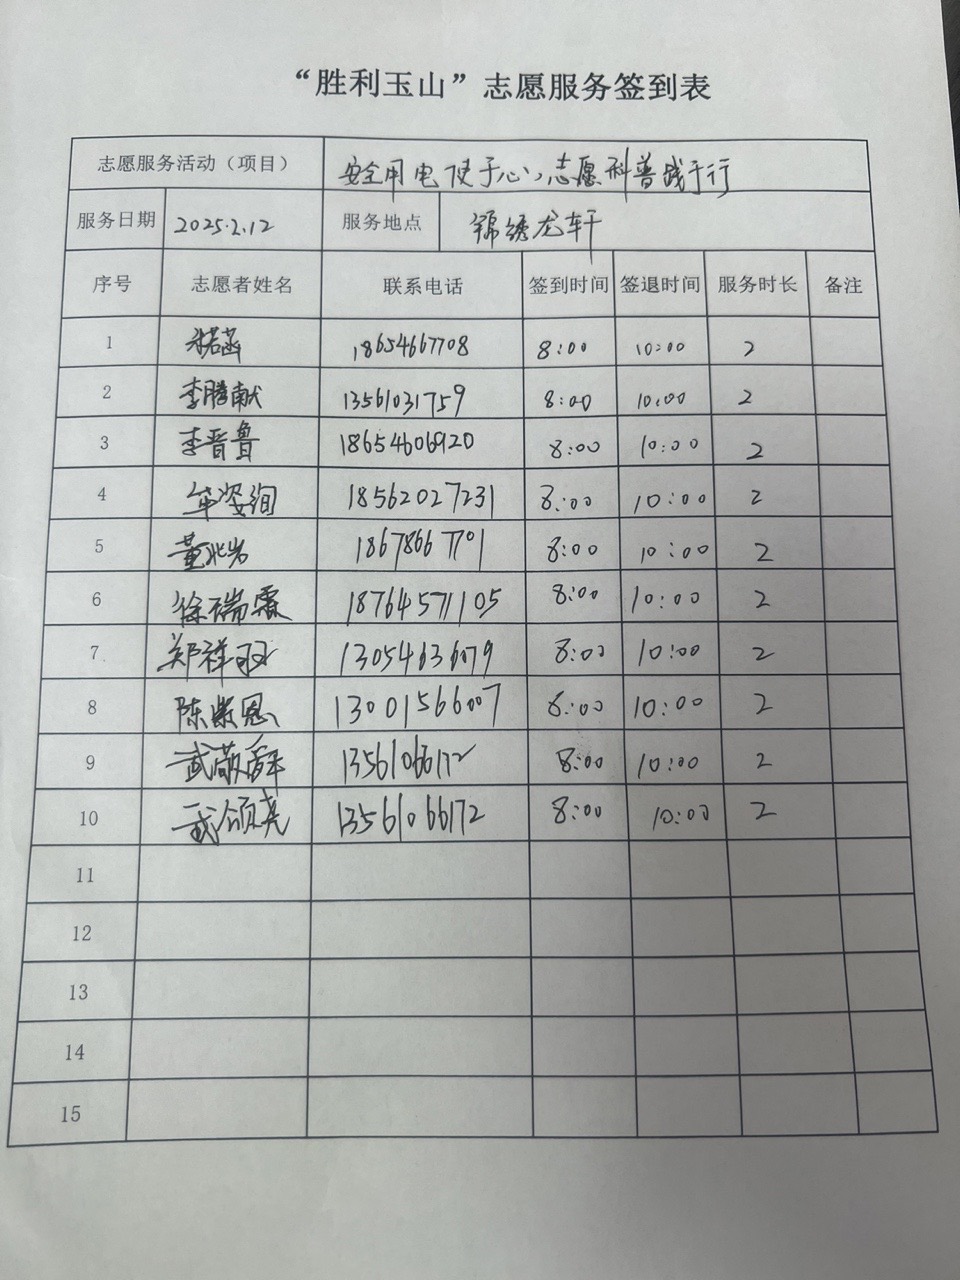 “胜利玉山”志愿服务签到表
志愿服务活动（项目） 安全用电使于心，志愿科普践于行
服务日期 2025.2.12 服务地点 锦绣龙轩
序号 志愿者姓名 联系电话 签到时间 签退时间 服务时长 备注
1 18654667708 8:00 10:00 2
2 李腾献 13561031759 8:00 10:00 2
3 李晋鲁 18654606920 8:00 10:00 2
4 牟姿绚 18562027231 8:00 10:00 2
5 董兆岩 18678667701 8:00 10:00 2
6 徐瑞霖 18764571105 8:00 10:00 2
7 郑祥羽 13054636079 8:00 10:00 2
8 陈紫恩 13001566007 8:00 10:00 2
9 武敬舜 13561066172 8:00 10:00 2
10 武颂尧 13561066172 8:00 10:00 2
11
12
13
14
15